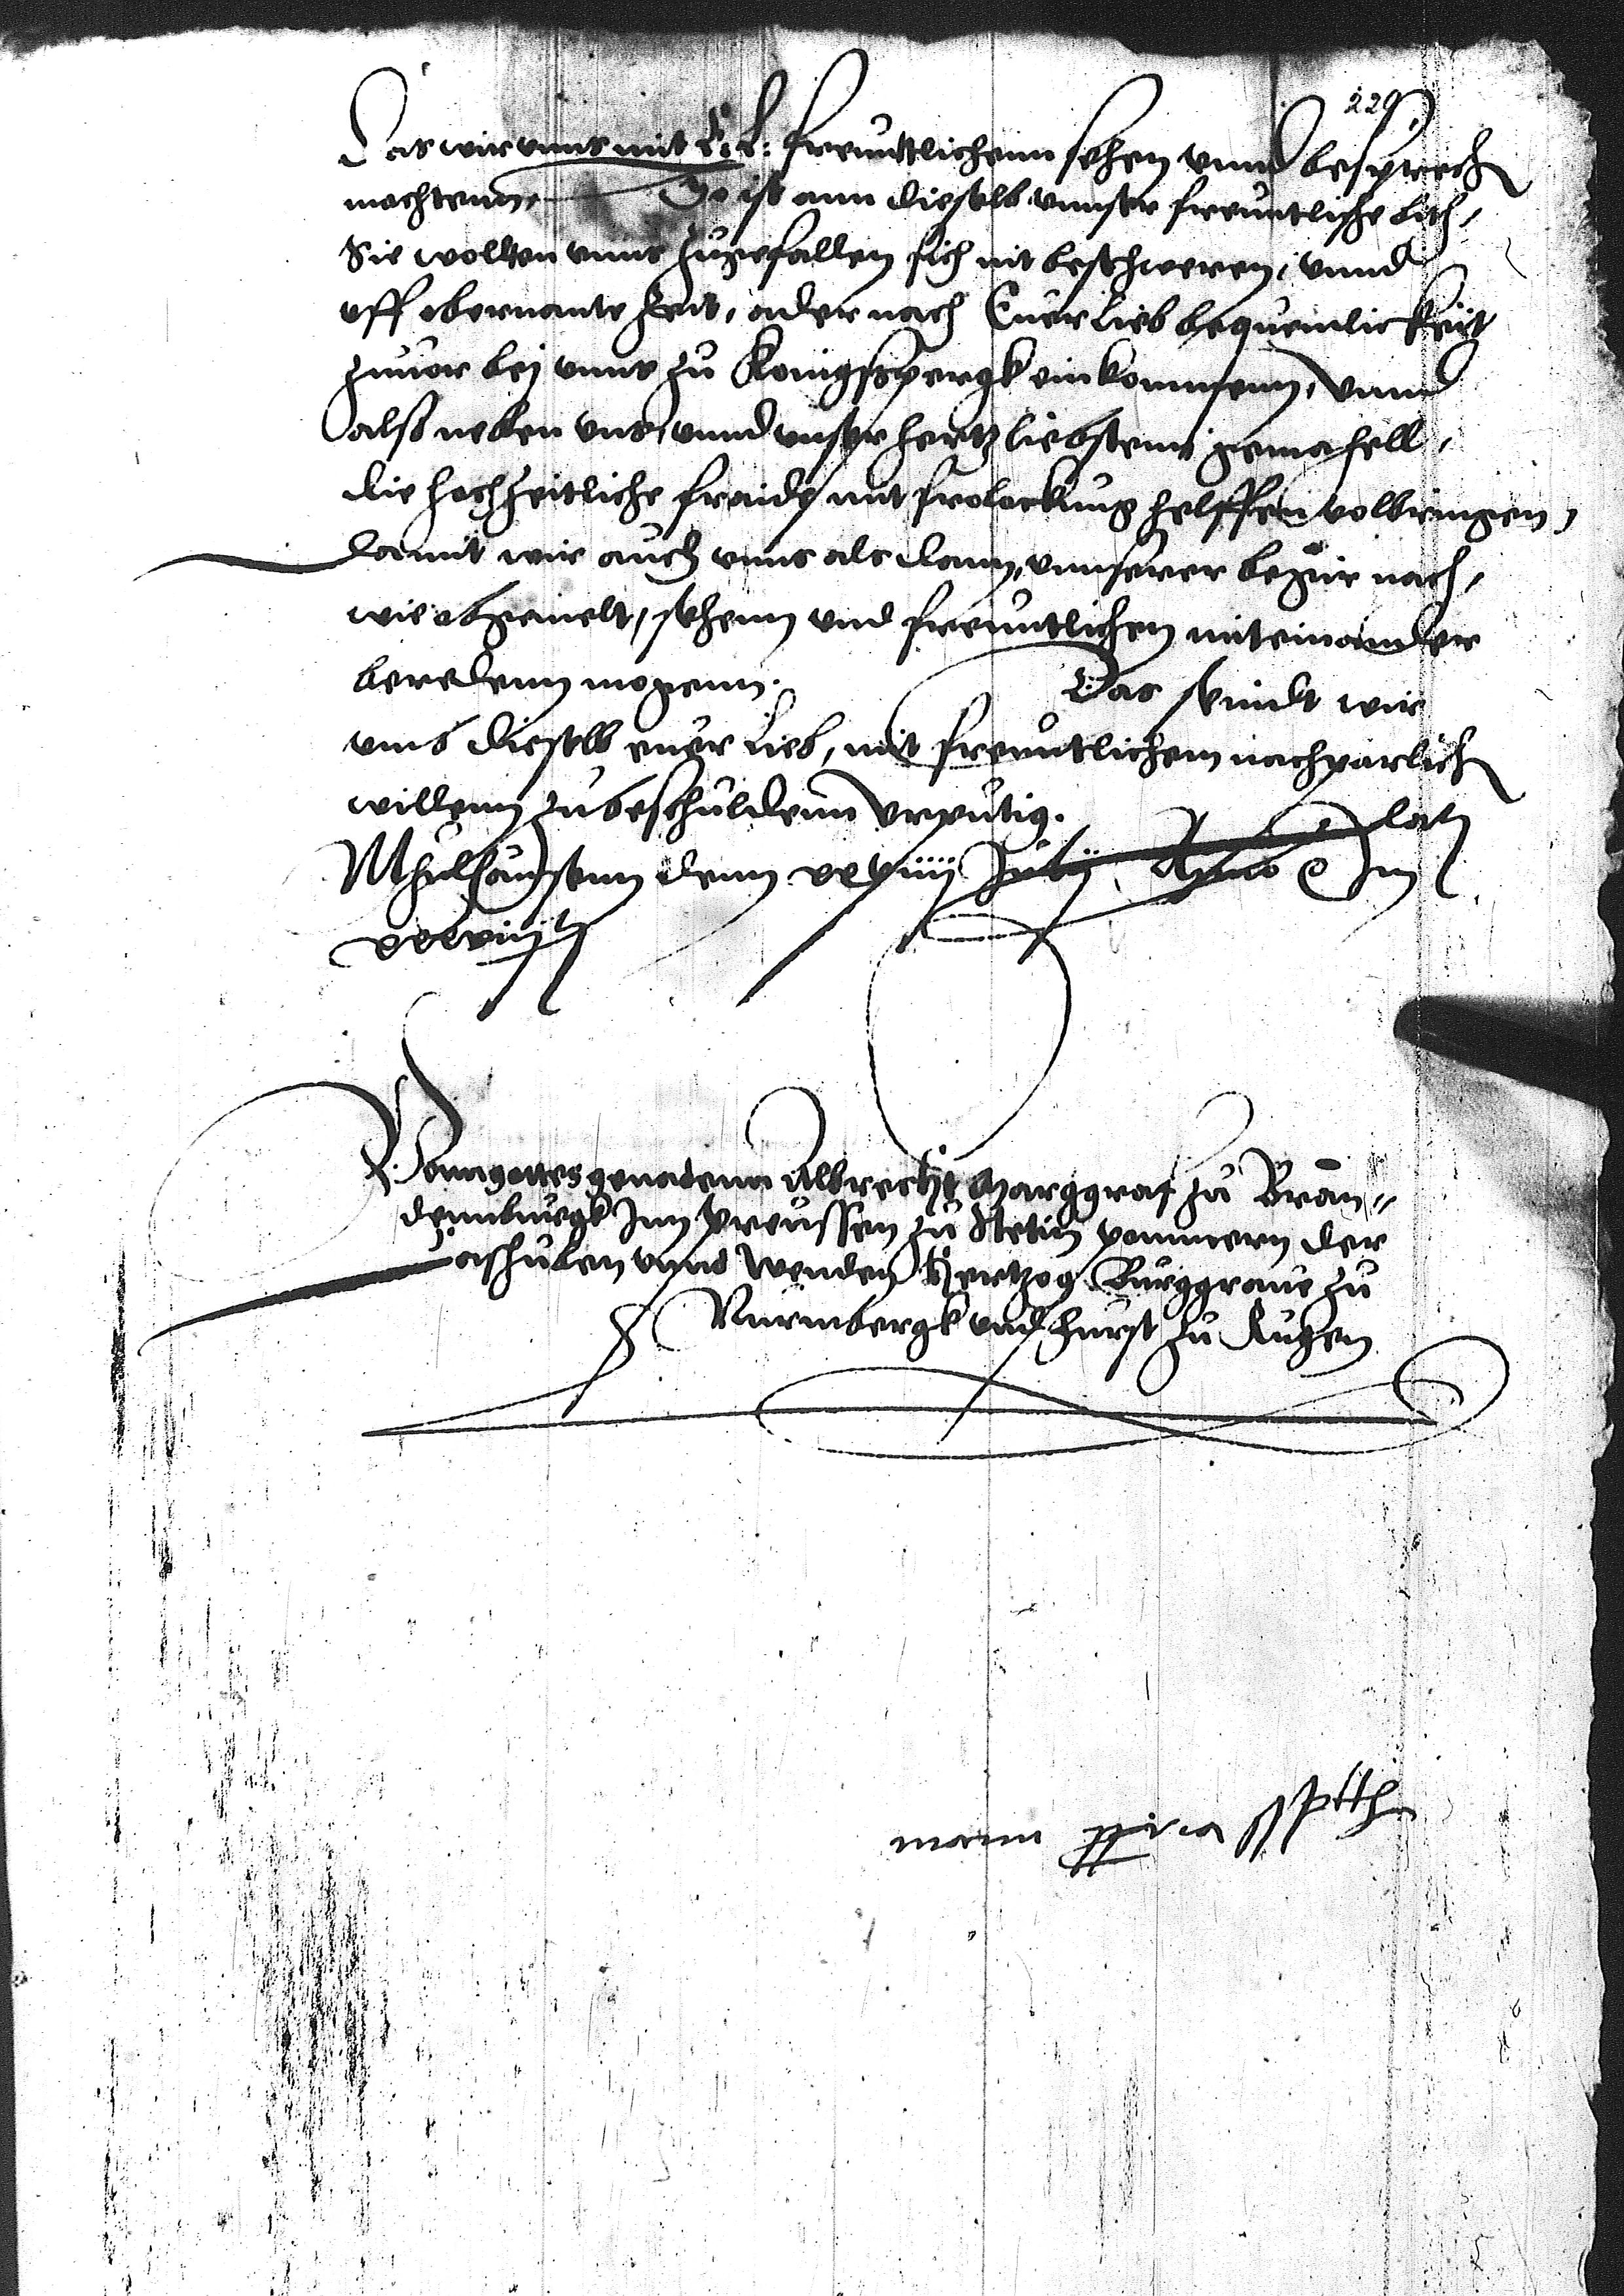 229
Das wir vnns mit E. L. freuntlichenn sehen vnnd besprech
mochtenn. So ist ann dieselb vnnser freuntliche bith,
Sie wollen vnns zugefallen sich nit beschweren, vnnd
vff obernante zeit, ader nach Euer lieb bequemlickeit
zuuor bej vnns zu Konigsspergk einkommenn, vnnd
also neben vns vnnd vnser hertzliebstenn gemahell,
die hochzeitliche fraide mit frolockung helffen volbringen,
damit wir auch vnns als dann, vnnserer begir nach,
wie obgemelt, sehenn vnd freuntlichen miteinander
beredenn mogenn. Das seindt wir
vmb dieselb euer lieb, mit freuntlichem nachparlich
willenn zubeschuldenn vrputig. Datum
Mhulhausenn denn xxviiii Julij Anno Im
xxxviijt
Vonn gottes genadenn Albrecht Marggraf zu Bran-
dennburgk Inn Preussen zu Stetin pommern der
Casshuben vnnd Wenden Hertzog Burggraue zu
Nurmbergk vnd furst zu Rugen
mann ppria sspth